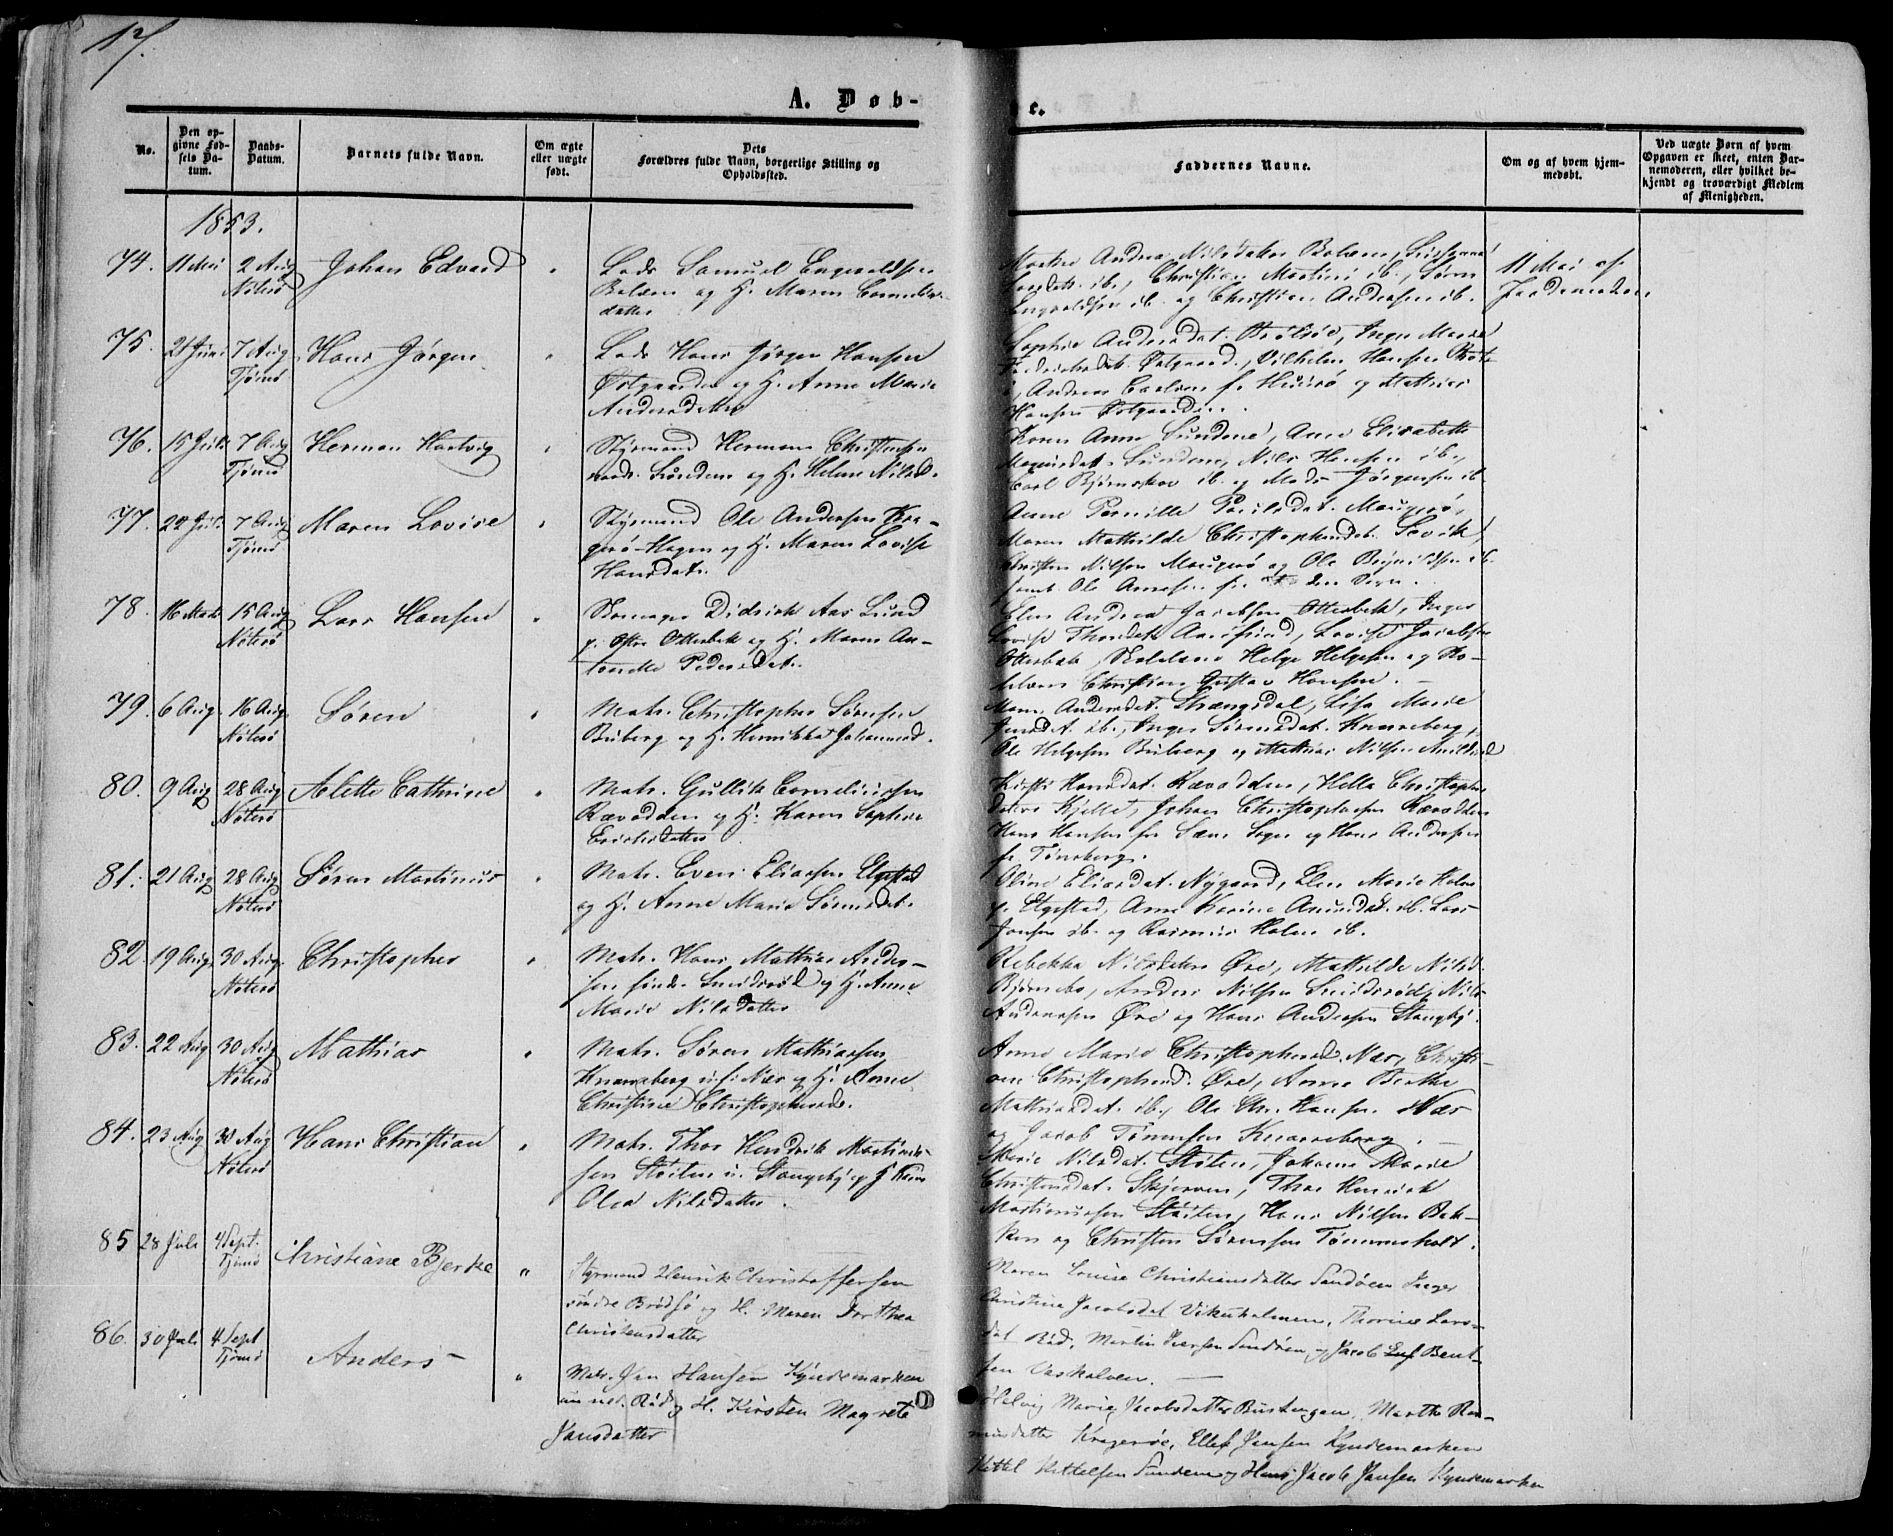 17.
A. Døb-
No.
Den op-
givne Fød-
sels Da-
tum.
Daabs-
Datum.
Barnets fulde Navn.
Om ægte
eller uægte
født.
Dets
Forældres fulde Navn, borgerlige Stilling og
Opholdssted.
1853.
74. 11 Mai 2 Aug Nøterø Johan Edvard "
Lods Samuel Engvoldsen
Bolærn og H. Maren Cornelius-
datter
75. 7 Aug Tjømø Hans Jørgen "
Lods Hans Jørgen Hansen
Østgaarden og H. Anne Marie
Andersdatter
76. 15 Juli 7 Aug Tjømø Herman Hartvig "
Styrmand Herman Christensen
Sundene og H. Helene Nilsd.
77. 22 Juli 7 Aug Tjømø Maren Lovise "
Styrmand Ole Andersen Kra-
gerø-Hagen og H. Maren Lovise
Hansdat.
78. 16 Marts 15 Aug Nøterø Lars Hansen "
Skomager Didrik Aas Lund
p. Ostre Otterbek og H. Maren An-
tonette Pedersdat.
79. 6 Aug. 16 Aug. Nøterø Søren "
Matr. Christopher Sørensen
Buberg og H. Henrikke Johannesd.
80. 9 Aug 28 Aug Nøterø Alette Cathrine "
Matr. Gullik Corneliussen
Rævodden og H. Karen Sophie
Erichsdatter
81. 21 Aug 28 Aug Nøterø Søren Martinus "
Matr. Even Eliassen Elgestad
og H. Anne Marie Sørensdat.
82. 19 Aug. 30 Aug. Nøterø Christopher "
Matr. Hans Mathias Ander-
sen søndre Smidsrød og H. Anne
Marie Nilsdatter
83. 22 Aug 30 Aug Nøterø Mathias "
Matr. Søren Mathiassen
Knarreberg u. f. Næs og H. Anne
Christine Christophersd.
84. 23 Aug 30 Aug Nøterø Hans Christian "
Matr. Thor Hendrik Martinus-
sen Støiten u. Stangeby og H. Karen
Olea Nilsdatter.
85 28 Juli 4 Sept. Tjømø Christiane Bjerke "
Styrmand Henrik Christoffersen
søndre Brødsø og H. Maren Dorthea
Christensdatter
86. 30 Juli 4 Sept Tjømø Anders "
Matr. Jan Hansen Kyndemarken
Rød og H. Kirsten Magrete
Jansdatter
e.
Faddernes Navne.
Om og af hvem hjem-
medøbt.
Ved uægte Børn af hvem
Opgaven er skeet, enten Bar-
nemoderen, eller hvilket be-
kjendt og troværdigt Medlem
af Menigheden.
Marthe Andrea Nilsdatter Bolærn,
ib., Christian Martins ib., Søren
Engvoldsen ib. og Christian Andersen ib.
11 Mai af
Jordemoderen
Sophie Andersdat. Inger Marie
Østgaard, Vilhelm Hansen
Andreas Carlsen f. Hvasø og Mathias
Hansen Østgaarden.
Karen Anne Sundene, Anne Elisabeth
Magnusdat. Sundene, Nils Hansen ib.,
Carl Bjørnskov ib. og Mads Jørgensen ib
Anne Pernille Paulsdat. Maugerø,
Maren Mathilde Christophersdat. Sevik,
Christen Nilsen Maugerø og Ole ib.
samt Ole
Elen Andrea Jacobsen Otterbek, Inger
Lovise Thorsdat. Lovise Jacobsen
Otterbek, Helge Helgesen og
Christian Gustav Hansen.
Maren Andersdat. Strængsdal, Lisa Marie
ib., Inger Sørensdat. Knarreberg,
Ole Helgesen Buberg og Mathias Nilsen
Kirsti Hansdat. Rævodden, Hella Christopher-
datter Kjelle, Johan Christophersen Rævodden
Hans Hansen fra Sæm Sogn og Hans Andersen
fr. Tønsberg.
Oline Eliasdat. Nygaard, Elen Marie Holm
p. Elgestad, Anne Karine Amundsdat. ib. Lars
Jonsen ib. og Rasmus Holm ib.
Rebekka Nilsdatter Øre, Mathilde Nilsd.
Bjørnebo, Anders Nilsen Smidsrød, Nils
Andersen Øre og Hans Andersen Stangeby.
Anne Marie Christophersd. Næs, Christi-
ane Christophersd. Øre, Anne Berthe
Mathiasdat. ib., Ole Chr. Hansen Næs
og Jacob Tønnesen Knarreberg.
Marie Nilsdat. Støiten, Johanne Marie
Christensdat. Skjerven, Thor Henrick
Martinussen Støiten, Hans Nilsen Bak-
ken og Christen Sørensen Tømmerholt.
Maren Louise Christiansdatter Sandøen Inger
Christine Jacobsdat Vikerholmen, Thorine Lars-
dat Rød, Martin Iversen Sandøen og Jacob Bent-
sen Vaskalven.
Marie Jacobsdatter Marthe Ras-
musdatter Kragerøe, Ellef Jansen Kyndemarken
Kittel Kittelsen Sundene og Hans Jacob Jansen Kyndemarken